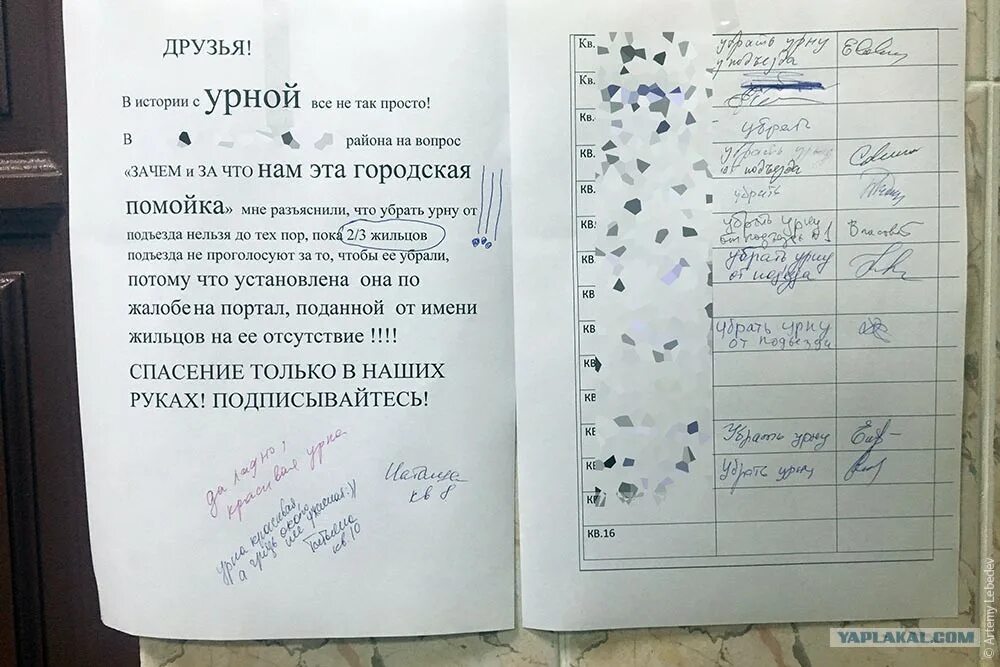 ДРУЗЬЯ!
В истории с урной все не так просто!
В района на вопрос
«ЗАЧЕМ и ЗА ЧТО нам эта городская
помойка» мне разъяснили, что убрать урну от
подъезда нельзя до тех пор, пока 2/3 жильцов
подъезда не проголосуют за то, чтобы ее убрали,
потому что установлена она по
жалобе на портал, поданной от имени
жильцов на ее отсутствие !!!!
СПАСЕНИЕ ТОЛЬКО В НАШИХ
РУКАХ! ПОДПИСЫВАЙТЕСЬ!
!!!
да ладно!
красивая урна
Наташа
кв 8
урна красивая,
а грязь около
нее ужасная:))
Татьяна
кв 10
Кв. убрать урну
у подъезда
Кв.
Кв. убрать
КВ. убрать урну
от подъезда
КВ. убрать
КВ убрать урну
от подъезда №1
КВ убрать урну
от подъезда
КВ
КВ убрать урну
от подъезда
КВ
КВ
КВ Убрать урну
КВ Убрать урну
КВ
КВ.16
© Artemy Lebedev
YAPLAKAL.COM